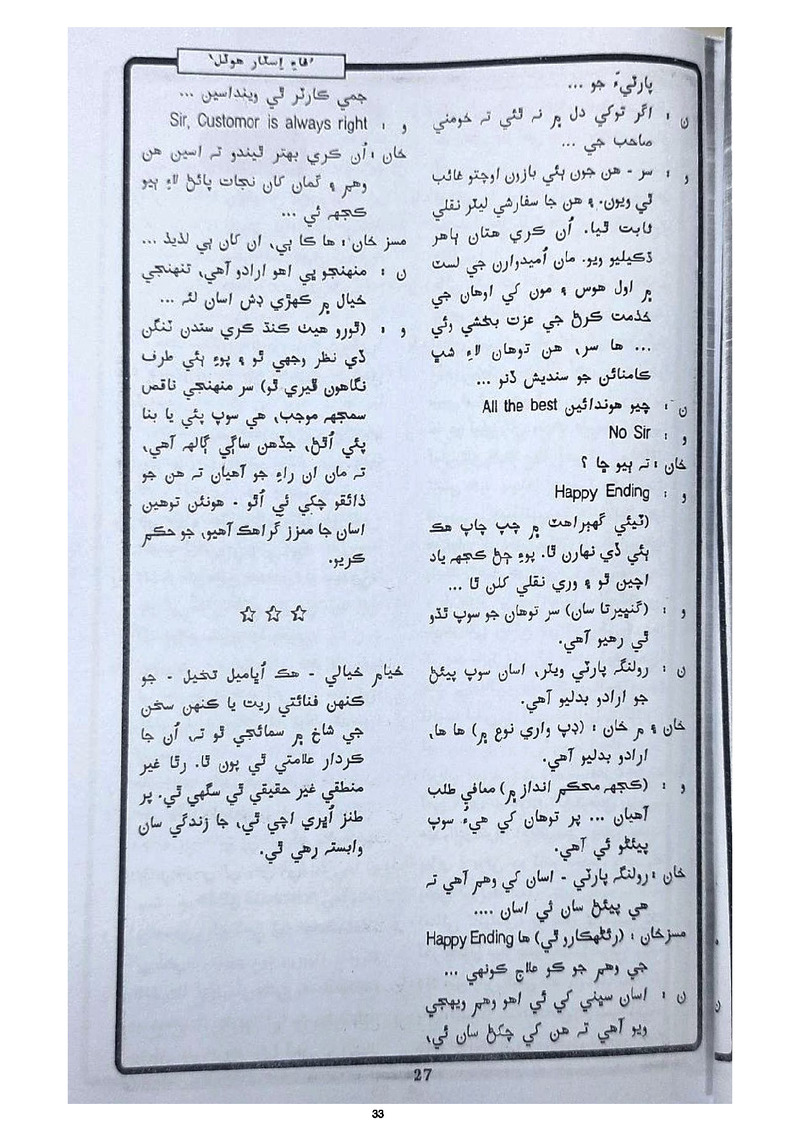 'فاءِ اِسٽار هوٽل'
پارٽيءَ جو ...
ن : اگر توکي دل ۾ نہ لڳي تہ خومني
صاحب جي ...
و : سر - هن جون ٻئي بازون اوچتو غائب
ٿي ويون. ۽ هن جا سفارشي ليٽر نقلي
ثابت ٿيا. اُن ڪري هتان ٻاهر
ڌڪيليو ويو. مان اُميدوارن جي لسٽ
۾ اول هوس ۽ مون کي اوهان جي
خدمت ڪرڻ جي عزت بخشي وئي
... ها سر، هن توهان لاءِ شڀ
ڪامنائن جو سنديش ڏنو ...
ن : چيو هوندائين All the best
و : No Sir
خان : تہ ٻيو ڇا ؟
و : Happy Ending
(ٽيئي گهٻراهٽ ۾ چپ چاپ هڪ
ٻئي ڏي نهارن ٿا. پوءِ ڄڻ ڪجهہ ياد
اچين ٿو ۽ وري نقلي کلن ٿا ...
و : (گنڀيرتا سان) سر توهان جو سوپ ٿڌو
ٿي رهيو آهي.
ن : رولنگہ پارٽي ويٽر، اسان سوپ پيئڻ
جو ارادو بدليو آهي.
خان ۽ م خان : (ڊپ واري نوع ۾) ها ها،
ارادو بدليو آهي.
و : (ڪجهہ محڪم انداز ۾) معافي طلب
آهيان ... پر توهان کي هيءُ سوپ
پيئڻو ئي آهي.
خان : رولنگہ پارٽي - اسان کي وهم آهي تہ
هي پيئڻ سان ئي اسان ....
مسز خان : (رئڻهارو ٿي) ها Happy Ending
جي وهم جو ڪو علاج ڪونهي ...
ن : اسان سڀني کي ئي اهو وهم ويهجي
ويو آهي تہ هن کي چکڻ سان ئي،
جمي ڪارٽر ٿي وينداسين ...
و : Sir, Customor is always right
خان : اُن ڪري بهتر ٿيندو تہ اسين هن
وهم ۽ گمان کان نجات پائڻ لاءِ ٻيو
ڪجهہ ئي ...
مسز خان : ها ڪا ٻي، ان کان ٻي لذيذ ...
ن : منهنجو پي اهو ارادو آهي، تنهنجي
خيال ۾ ڪهڙي ڊش اسان لئہ ...
و : (ٿورو هيٺ ڪنڌ ڪري سندن ٽنگن
ڏي نظر وجهي ٿو ۽ پوءِ ٻئي طرف
نگاهون ڦيري ٿو) سر منهنجي ناقص
سمجهہ موجب، هي سوپ پئي يا بنا
پئي اُٿڻ، جڏهن ساڳي ڳالهہ آهي،
تہ مان ان راءِ جو آهيان تہ هن جو
ذائقو چکي ئي اُٿو - هونئن توهين
اسان جا معزز گراهڪ آهيو، جو حڪم
ڪريو.
☆ ☆ ☆
خيام خيالي - هڪ اُڀاميل تخيل - جو
ڪنهن فنائتي ريت يا ڪنهن سخن
جي شاخ ۾ سمائجي ٿو تہ، اُن جا
ڪردار علامتي ٿي پون ٿا. رٿا غير
منطقي غير حقيقي ٿي سگهي ٿي. پر
طنز اُڀري اچي ٿي، جا زندگي سان
وابستہ رهي ٿي.
27
33